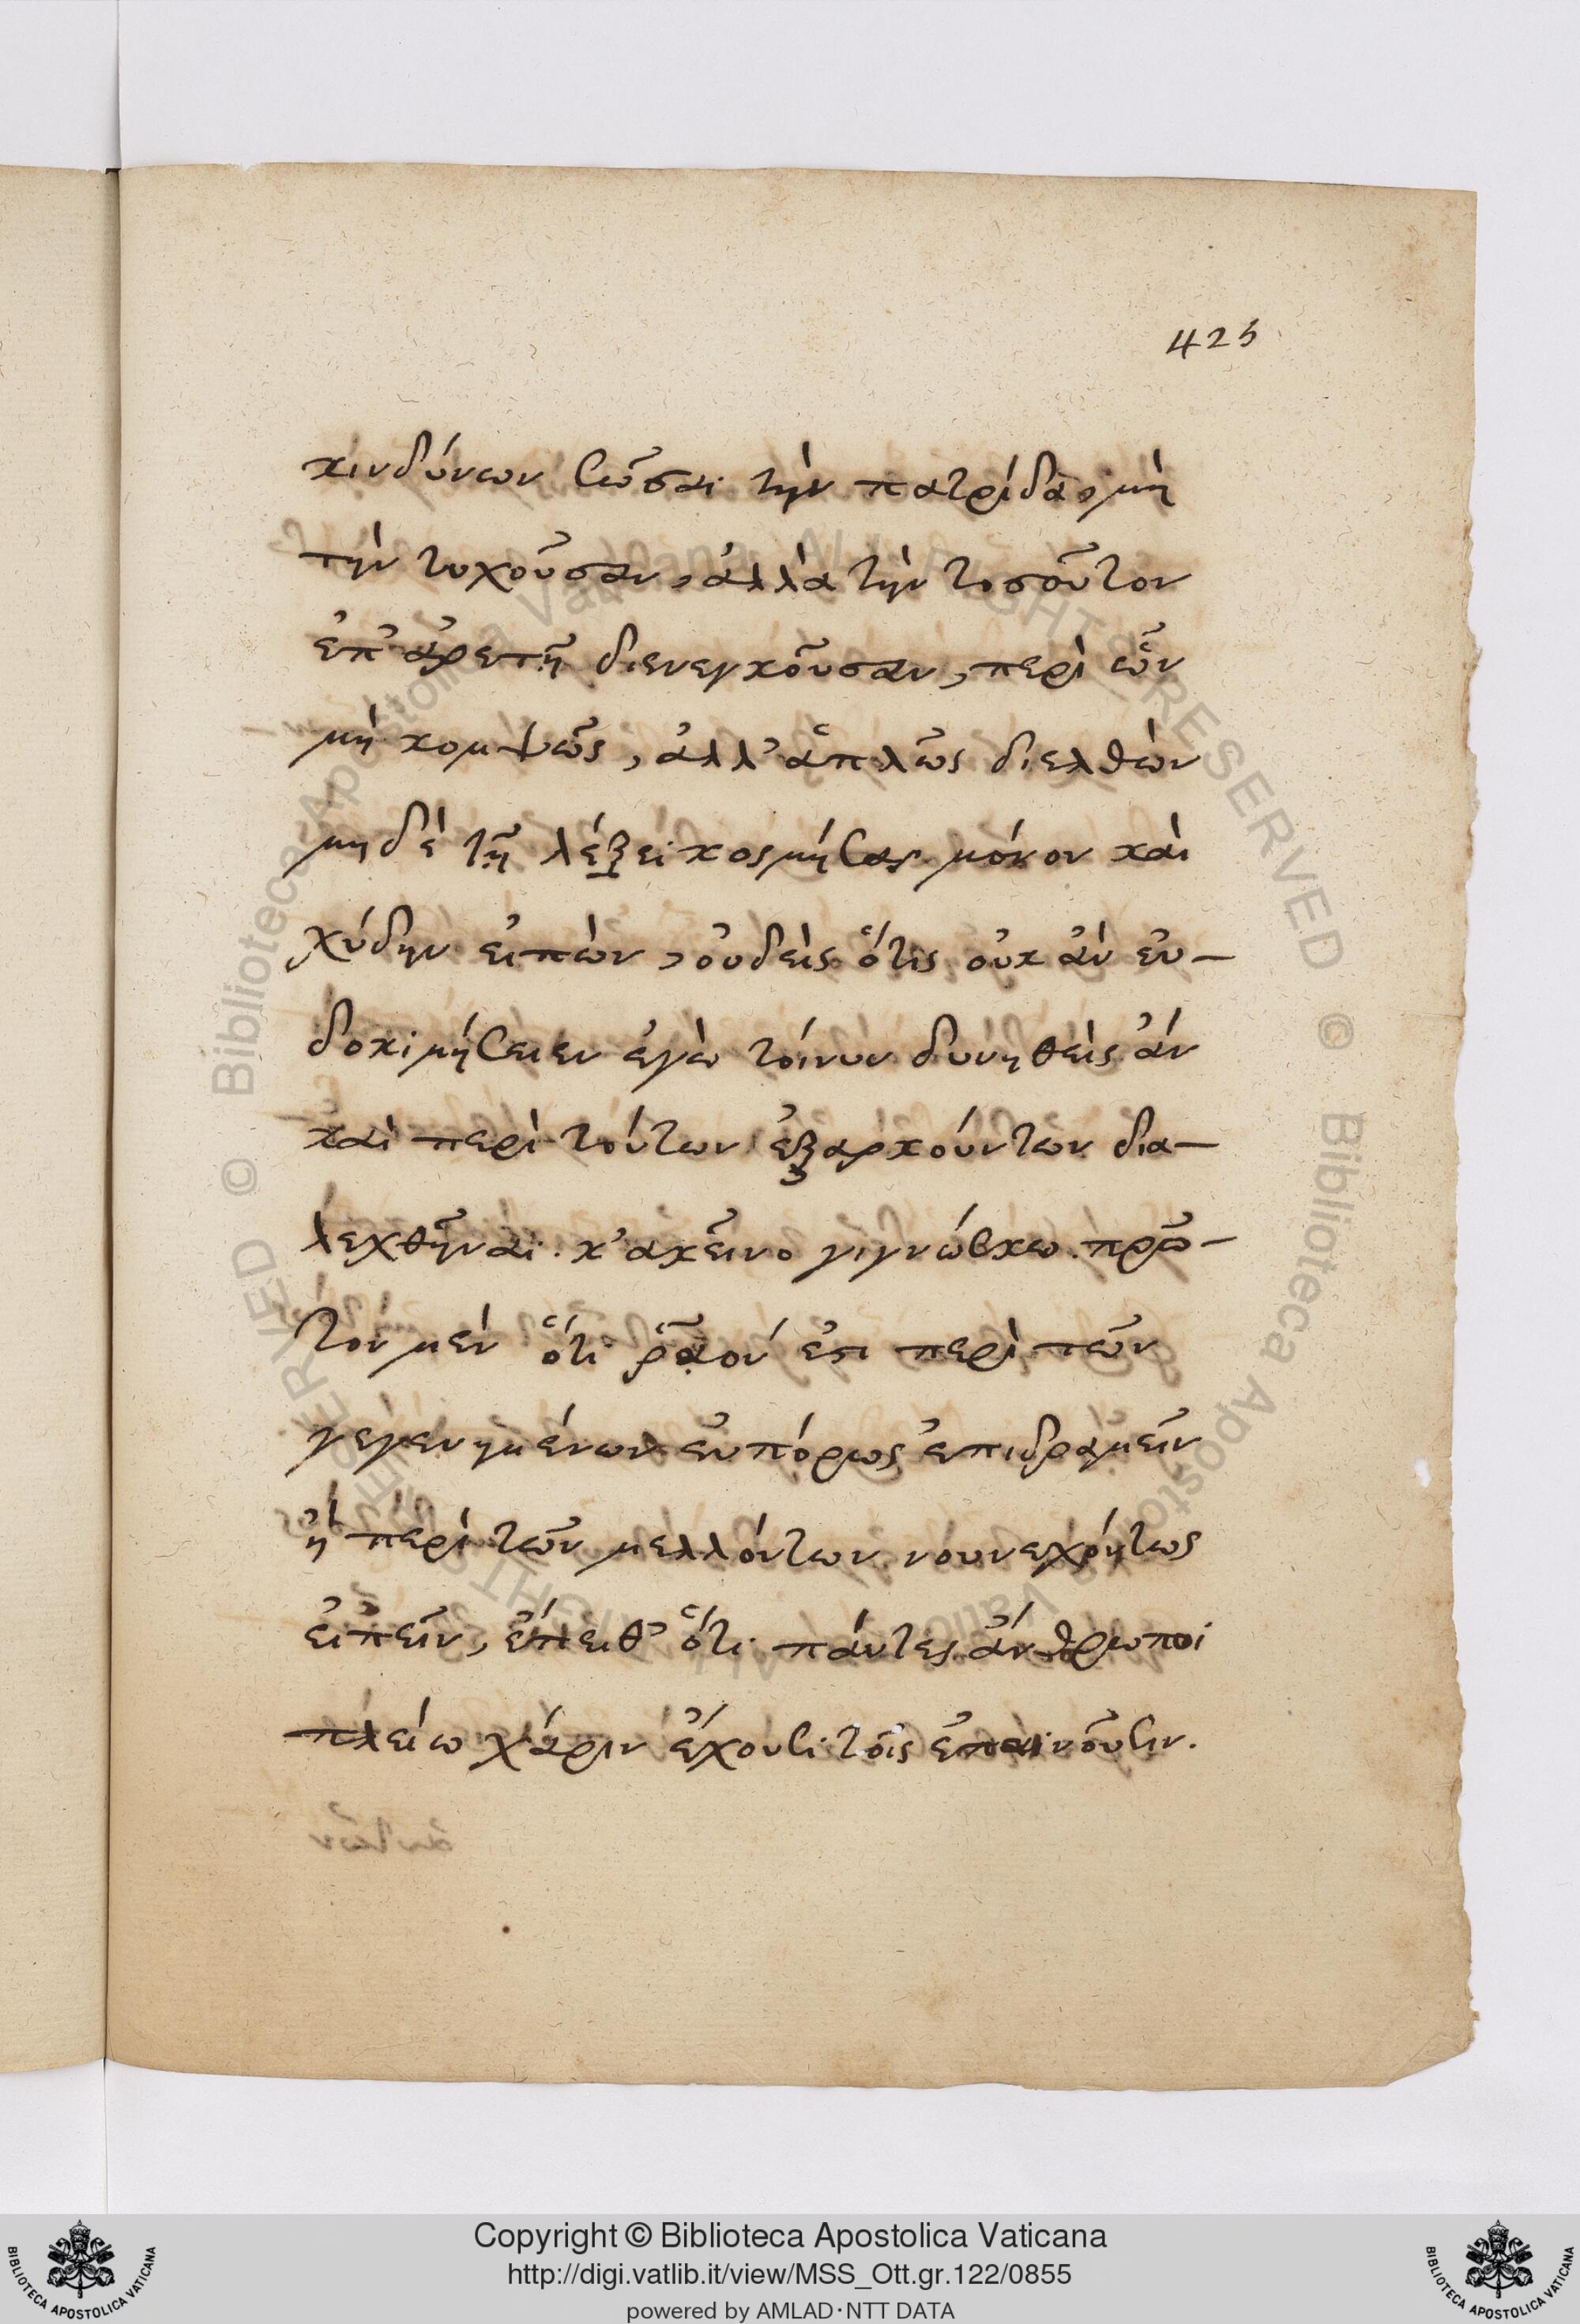 425
κινδύνων σῶσαι τὴν πατρίδα, μὴ
τὴν τυχοῦσαν, ἀλλὰ τὴν τοσοῦτον
ἐπ' ἀρετῇ διενεγκοῦσαν, περὶ ὧν
μὴ κομψῶς, ἀλλ' ἁπλῶς διελθὼν
μηδὲ τῇ λέξει κοσμήσας μόνον καὶ
χύδην εἰπὼν, οὐδεὶς ὅτις οὐκ ἂν εὐ-
δοκιμήσειεν ἐγὼ τοίνυν δυνηθεὶς ἂν
καὶ περὶ τούτων ἐξαρκούντων δια-
λεχθῆναι. κ'ἀκεῖνο γιγνώσκω. πρῶ-
τον μὲν ὅτι ῥᾷον ἐστι περὶ τῶν
γεγενημένων εὐπόρως ἐπιδραμεῖν
ἢ περὶ τῶν μελλόντων νουνεχόντως
εἰπεῖν, ἔπειθ' ὅτι πάντες ἄνθρωποι
πλείω χάριν ἔχουσι τοῖς ἐπαινοῦσιν.
Copyright © Biblioteca Apostolica Vaticana
http://digi.vatlib.it/view/MSS_Ott.gr.122/0855
powered by AMLAD·NTT DATA